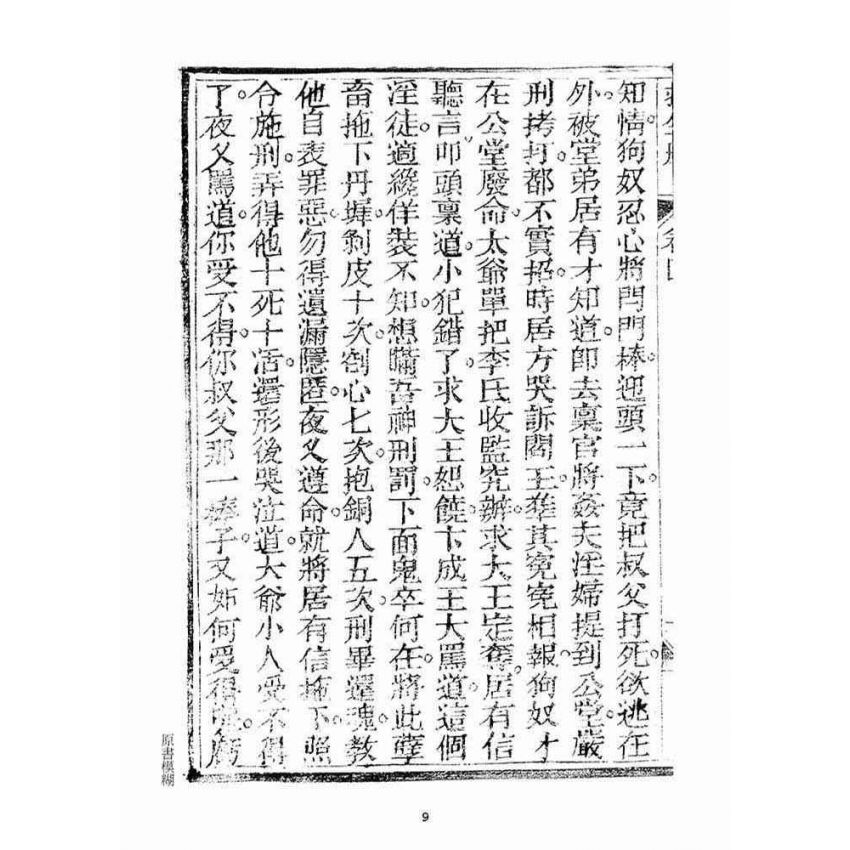 卷四
知情狗奴忍心將門門棒迎頭一下竟把叔父打死欲逃在
外被堂弟居有才知道即去稟官將姦夫淫婦提到公堂嚴
刑拷打都不實招時居方哭訴閻王准其冤冤相報狗奴才
在公堂廢命太爺單把李氏收監究辦求大王定奪居有信
聽言叩頭稟道小犯錯了求大王恕饒卞成王大罵道這個
淫徒適纔佯裝不知想瞞吾神刑罰下面鬼卒何在將此孽
畜拖下丹墀剝皮十次割心七次抱銅人五次刑畢還魂教
他自表罪惡勿得遺漏隱匿夜乂遵命就將居有信拖下照
令施刑弄得他十死十活還形後哭泣道大爺小人受不得
了夜乂罵道你受不得你叔父那一棒子又如何受得
原書模糊
9